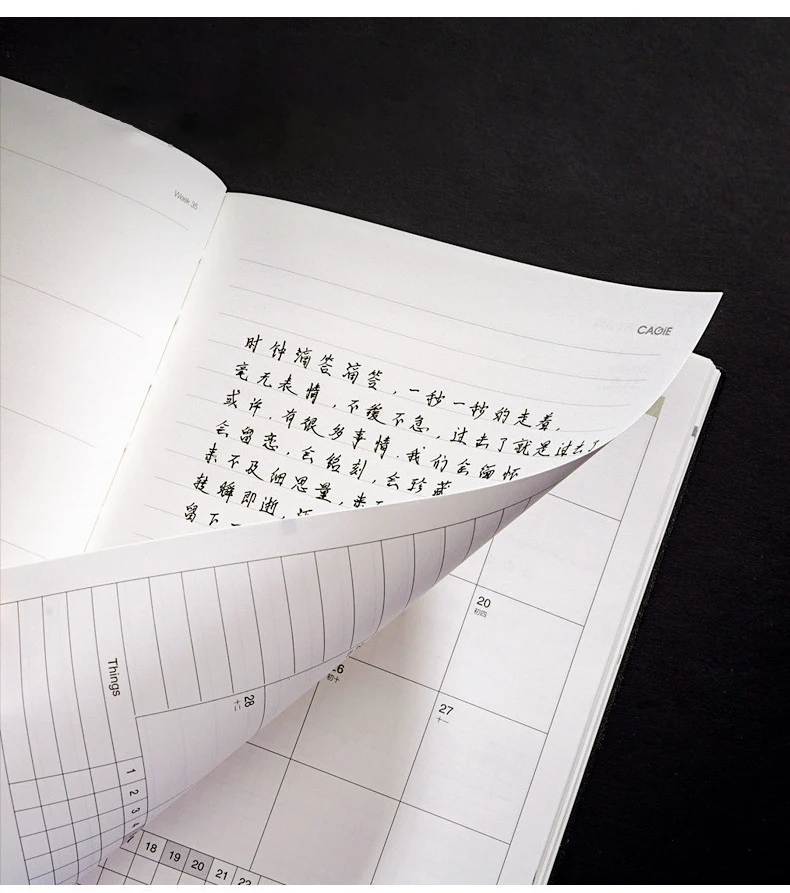 Week 35
CAGIE
时钟滴答滴答，一秒一秒的走着，
毫无表情，不缓不急，过去了就是过去了
或许，有很多事情，我们会缅怀
会留恋，会铭刻，会珍藏
来不及细思量，来不
转瞬即逝，
留下一
20
初四
初十
27
十一
28
十二
Things
1
2
3
4
18 19 20 21 22